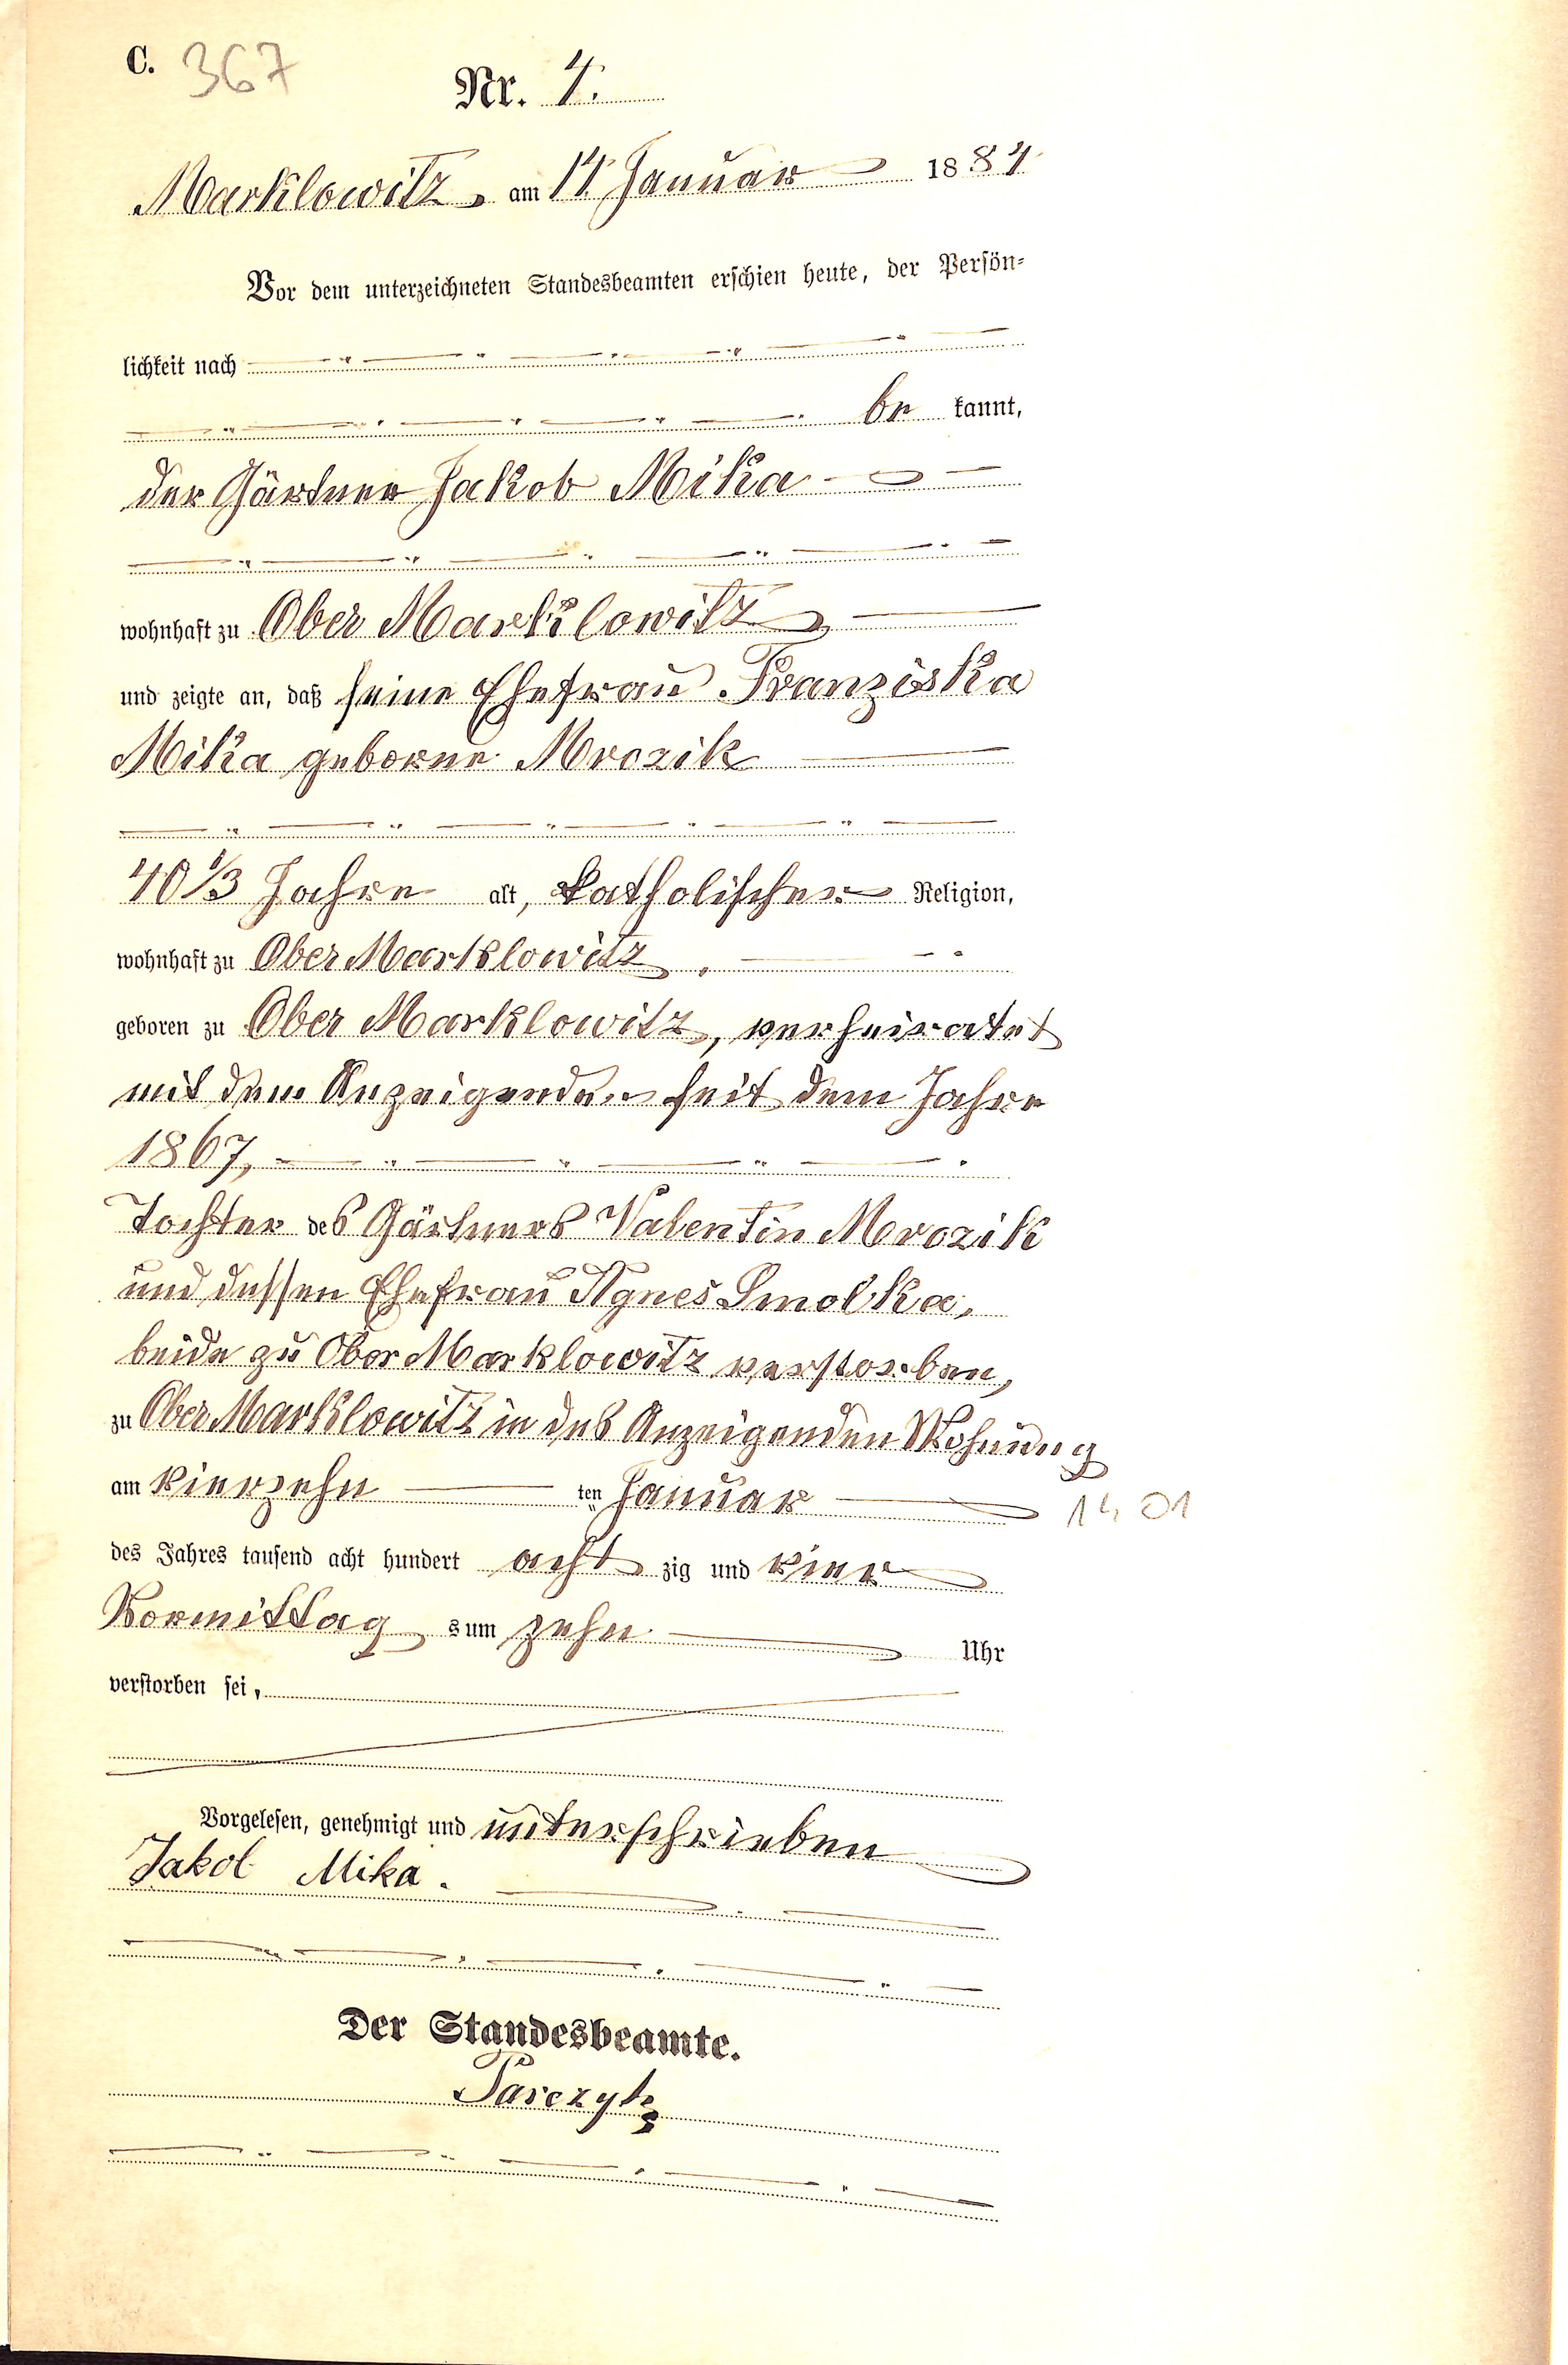 C. 367
Nr. 4.
Marklowitz am 14 Januar 1884
Vor dem unterzeichneten Standesbeamten erschien heute, der Persön-
lichkeit nach
be kannt,
der Gärtner Jakob Mika
wohnhaft zu Ober Marklowitz
und zeigte an, daß seine Ehefrau Franziska
Mika geborne Mrozik
40 1/3 Jahre alt, katholischer Religion,
wohnhaft zu Ober Marklowitz
geboren zu Ober Marklowitz, verheiratet
mit dem Anzeigenden seit dem Jahre
1867,
Tochter des Gärtners Valentin Mrozik
und dessen Ehefrau Agnes Smolka,
beide zu Ober Marklowitz verstorben,
zu Ober Marklowitz in des Anzeigenden Wohnung
am vierzehn ten Januar 14 01
des Jahres tausend acht hundert acht zig und vier
Vormittag s um zehn Uhr
verstorben sei,
Vorgelesen, genehmigt und unterschrieben
Jakob Mika.
Der Standesbeamte.